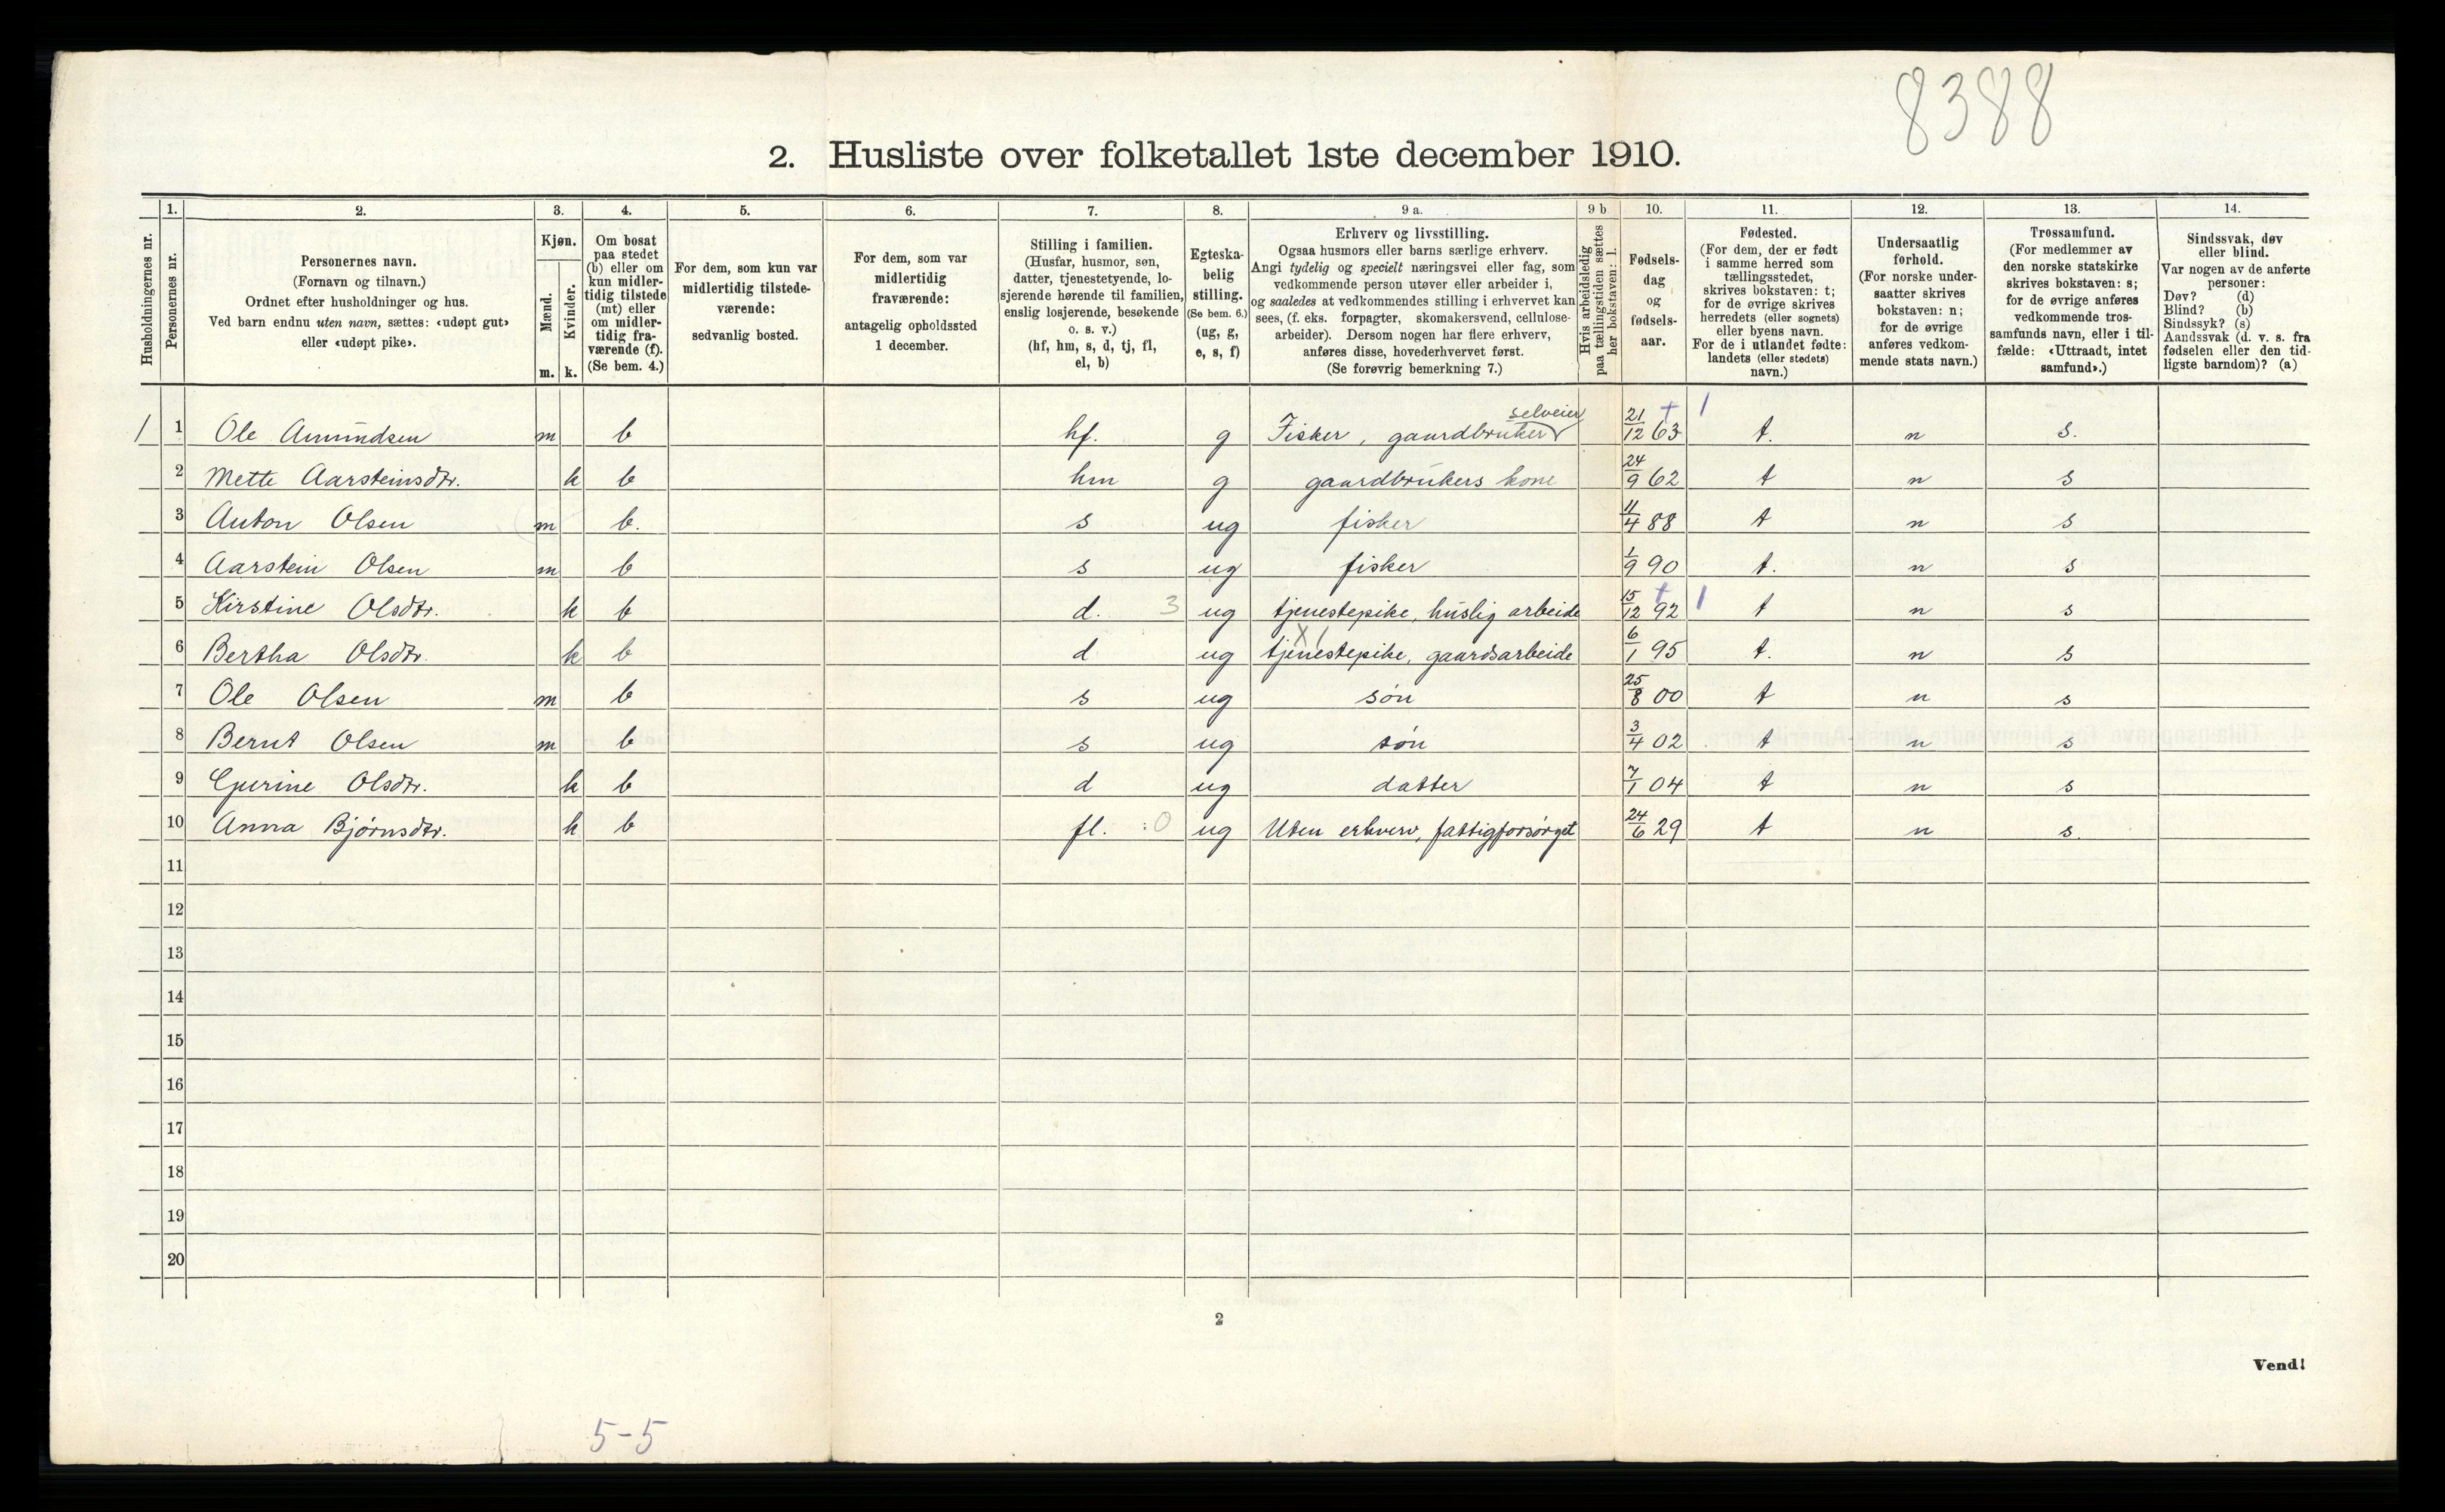 8388
2. Husliste over folketallet 1ste december 1910.
1. 2. 3. 4. 5. 6. 7. 8. 9 a. 9 b 10. 11. 12. 13. 14.
Husholdningernes nr.
Personernes nr.
Personernes navn.
(Fornavn og tilnavn.)
Ordnet efter husholdninger og hus.
Ved barn endnu uten navn, sættes: «udøpt gut»
eller «udøpt pike».
Kjøn.
Mænd.
Kvinder.
m. k.
Om bosat
paa stedet
(b) eller om
kun midler-
tidig tilstede
(mt) eller
om midler-
tidig fra-
værende (f).
(Se bem. 4.)
For dem, som kun var
midlertidig tilstede-
værende:
sedvanlig bosted.
For dem, som var
midlertidig
fraværende:
antagelig opholdssted
1 december.
Stilling i familien.
(Husfar, husmor, søn,
datter, tjenestetyende, lo-
sjerende hørende til familien,
enslig losjerende, besøkende
o. s. v.)
(hf, hm, s, d, tj, fl,
el, b)
Egteska-
belig
stilling.
(Se bem. 6.)
(ug, g,
e, s, f)
Erhverv og livsstilling.
Ogsaa husmors eller barns særlige erhverv.
Angi tydelig og specielt næringsvei eller fag, som
vedkommende person utøver eller arbeider i,
og saaledes at vedkommendes stilling i erhvervet kan
sees, (f. eks. forpagter, skomakersvend, cellulose-
arbeider). Dersom nogen har flere erhverv,
anføres disse, hovederhvervet først.
(Se forøvrig bemerkning 7.)
Hvis arbeidsledig
paa tællingstiden sættes
her bokstaven: l.
Fødsels-
dag
og
fødsels-
aar.
Fødested.
(For dem, der er født
i samme herred som
tællingsstedet,
skrives bokstaven: t;
for de øvrige skrives
herredets (eller sognets)
eller byens navn.
For de i utlandet fødte:
landets (eller stedets)
navn.)
Undersaatlig
forhold.
(For norske under-
saatter skrives
bokstaven: n;
for de øvrige
anføres vedkom-
mende stats navn.)
Trossamfund.
(For medlemmer av
den norske statskirke
skrives bokstaven: s;
for de øvrige anføres
vedkommende tros-
samfunds navn, eller i til-
fælde: «Uttraadt, intet
samfund».)
Sindssvak, døv
eller blind.
Var nogen av de anførte
personer:
Døv? (d)
Blind? (b)
Sindssyk? (s)
Aandssvak (d. v. s. fra
fødselen eller den tid-
ligste barndom)? (a)
selveier
1 1 Ole Amundsen m b hf. g Fisker, gaardbruker 21/12 63 t. n s.
2 Mette Aarsteinsdtr. k b hm g gaardbrukers kone 24/9 62 t n s
3 Anton Olsen m b. s ug fisker 11/4 88 t n s
4 Aarstein Olsen m b s ug fisker 1/9 90 t. n s
5 Kirstine Olsdtr. k b d. 3 ug tjenestepike, huslig arbeide 15/12 92 t n s
6 Bertha Olsdtr. k b d ug tjenestepike, gaardsarbeide 6/1 95 t. n s
7 Ole Olsen m b s ug søn 25/8 00 t n s
8 Bernt Olsen m b s ug søn 3/4 02 t n s
9 Gurine Olsdtr. k b d ug datter 7/1 04 t n s
10 Anna Bjørnsdtr. k b fl. :0 ug Uten erhverv, fattigforsørget 24/6 29 t n s.
11
12
13
14
15
16
17
18
19
20
2
Vend!
5-5